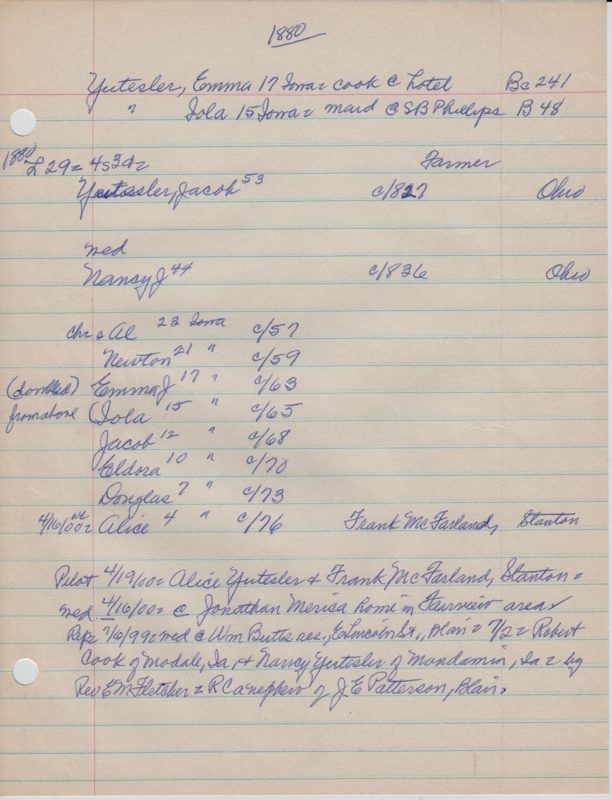 1880
Yutesler, Emma 17 Iowa = cook @ hotel Bc 241
" Iola 15 Iowa = maid @ SB Phillips B 48
1880 L 29 = 4s39= Farmer
Yutesler, Jacob 53 c/827 Ohio
wed
Nancy J 44 c/836 Ohio
chr = Al 23 Iowa c/57
Newton 21 " c/59
(doubled) Emma J 17 " c/63
from above (Iola 15 " c/65
Jacob 12 " c/68
Eldora 10 " c/70
Douglas 7 " c/73
4/16/00= we Alice 4 " c/76 Frank McFarland, Stanton
Pilot 4/19/00= Alice Yutesler & Frank McFarland, Stanton =
wed 4/16/00= @ Jonathan Merisa home in Fairview area
Rep= 7/6/99= wed @ Wm Butts res, E Lincoln St., Blair = 7/2 = Robert
Cook of Modale, Ia, & Nancy Yutesler of Mondamin, Ia = by
Rev E M Fletcher = RC a nephew of J E Patterson, Blair.